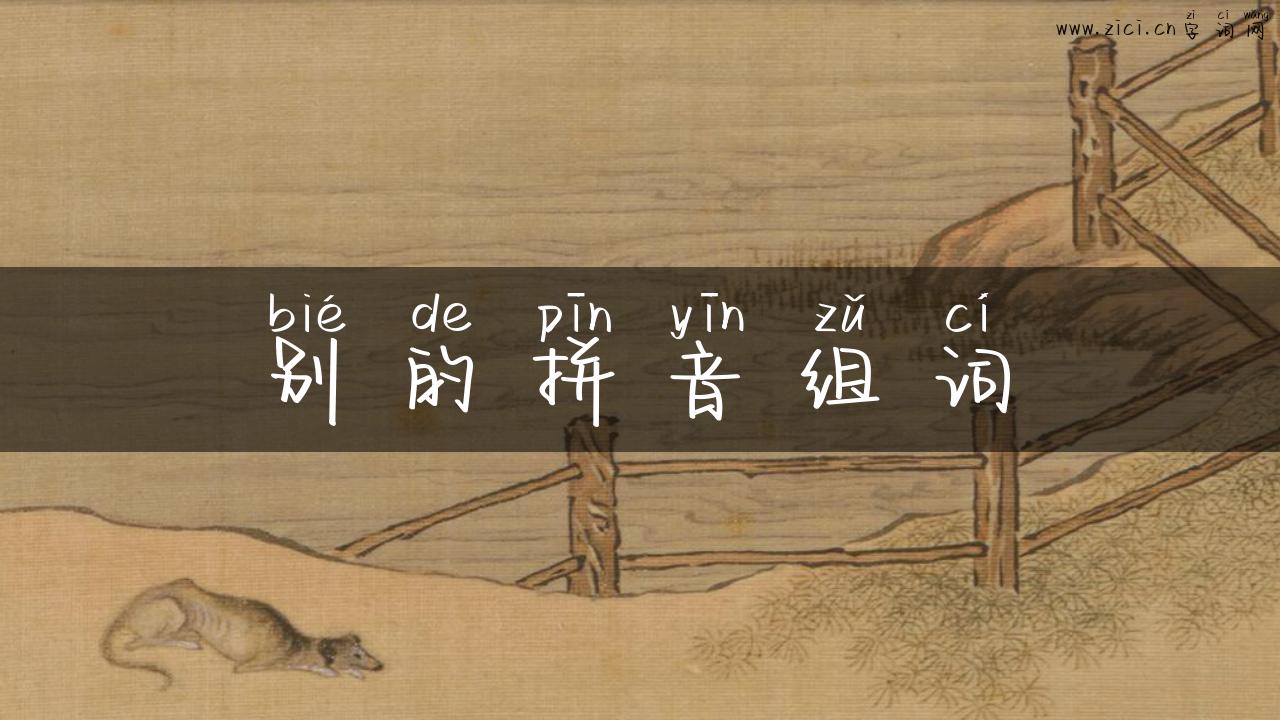 zì cí wǎng
www.zici.cn 字词网
bié de pīn yīn zǔ cí
别的拼音组词